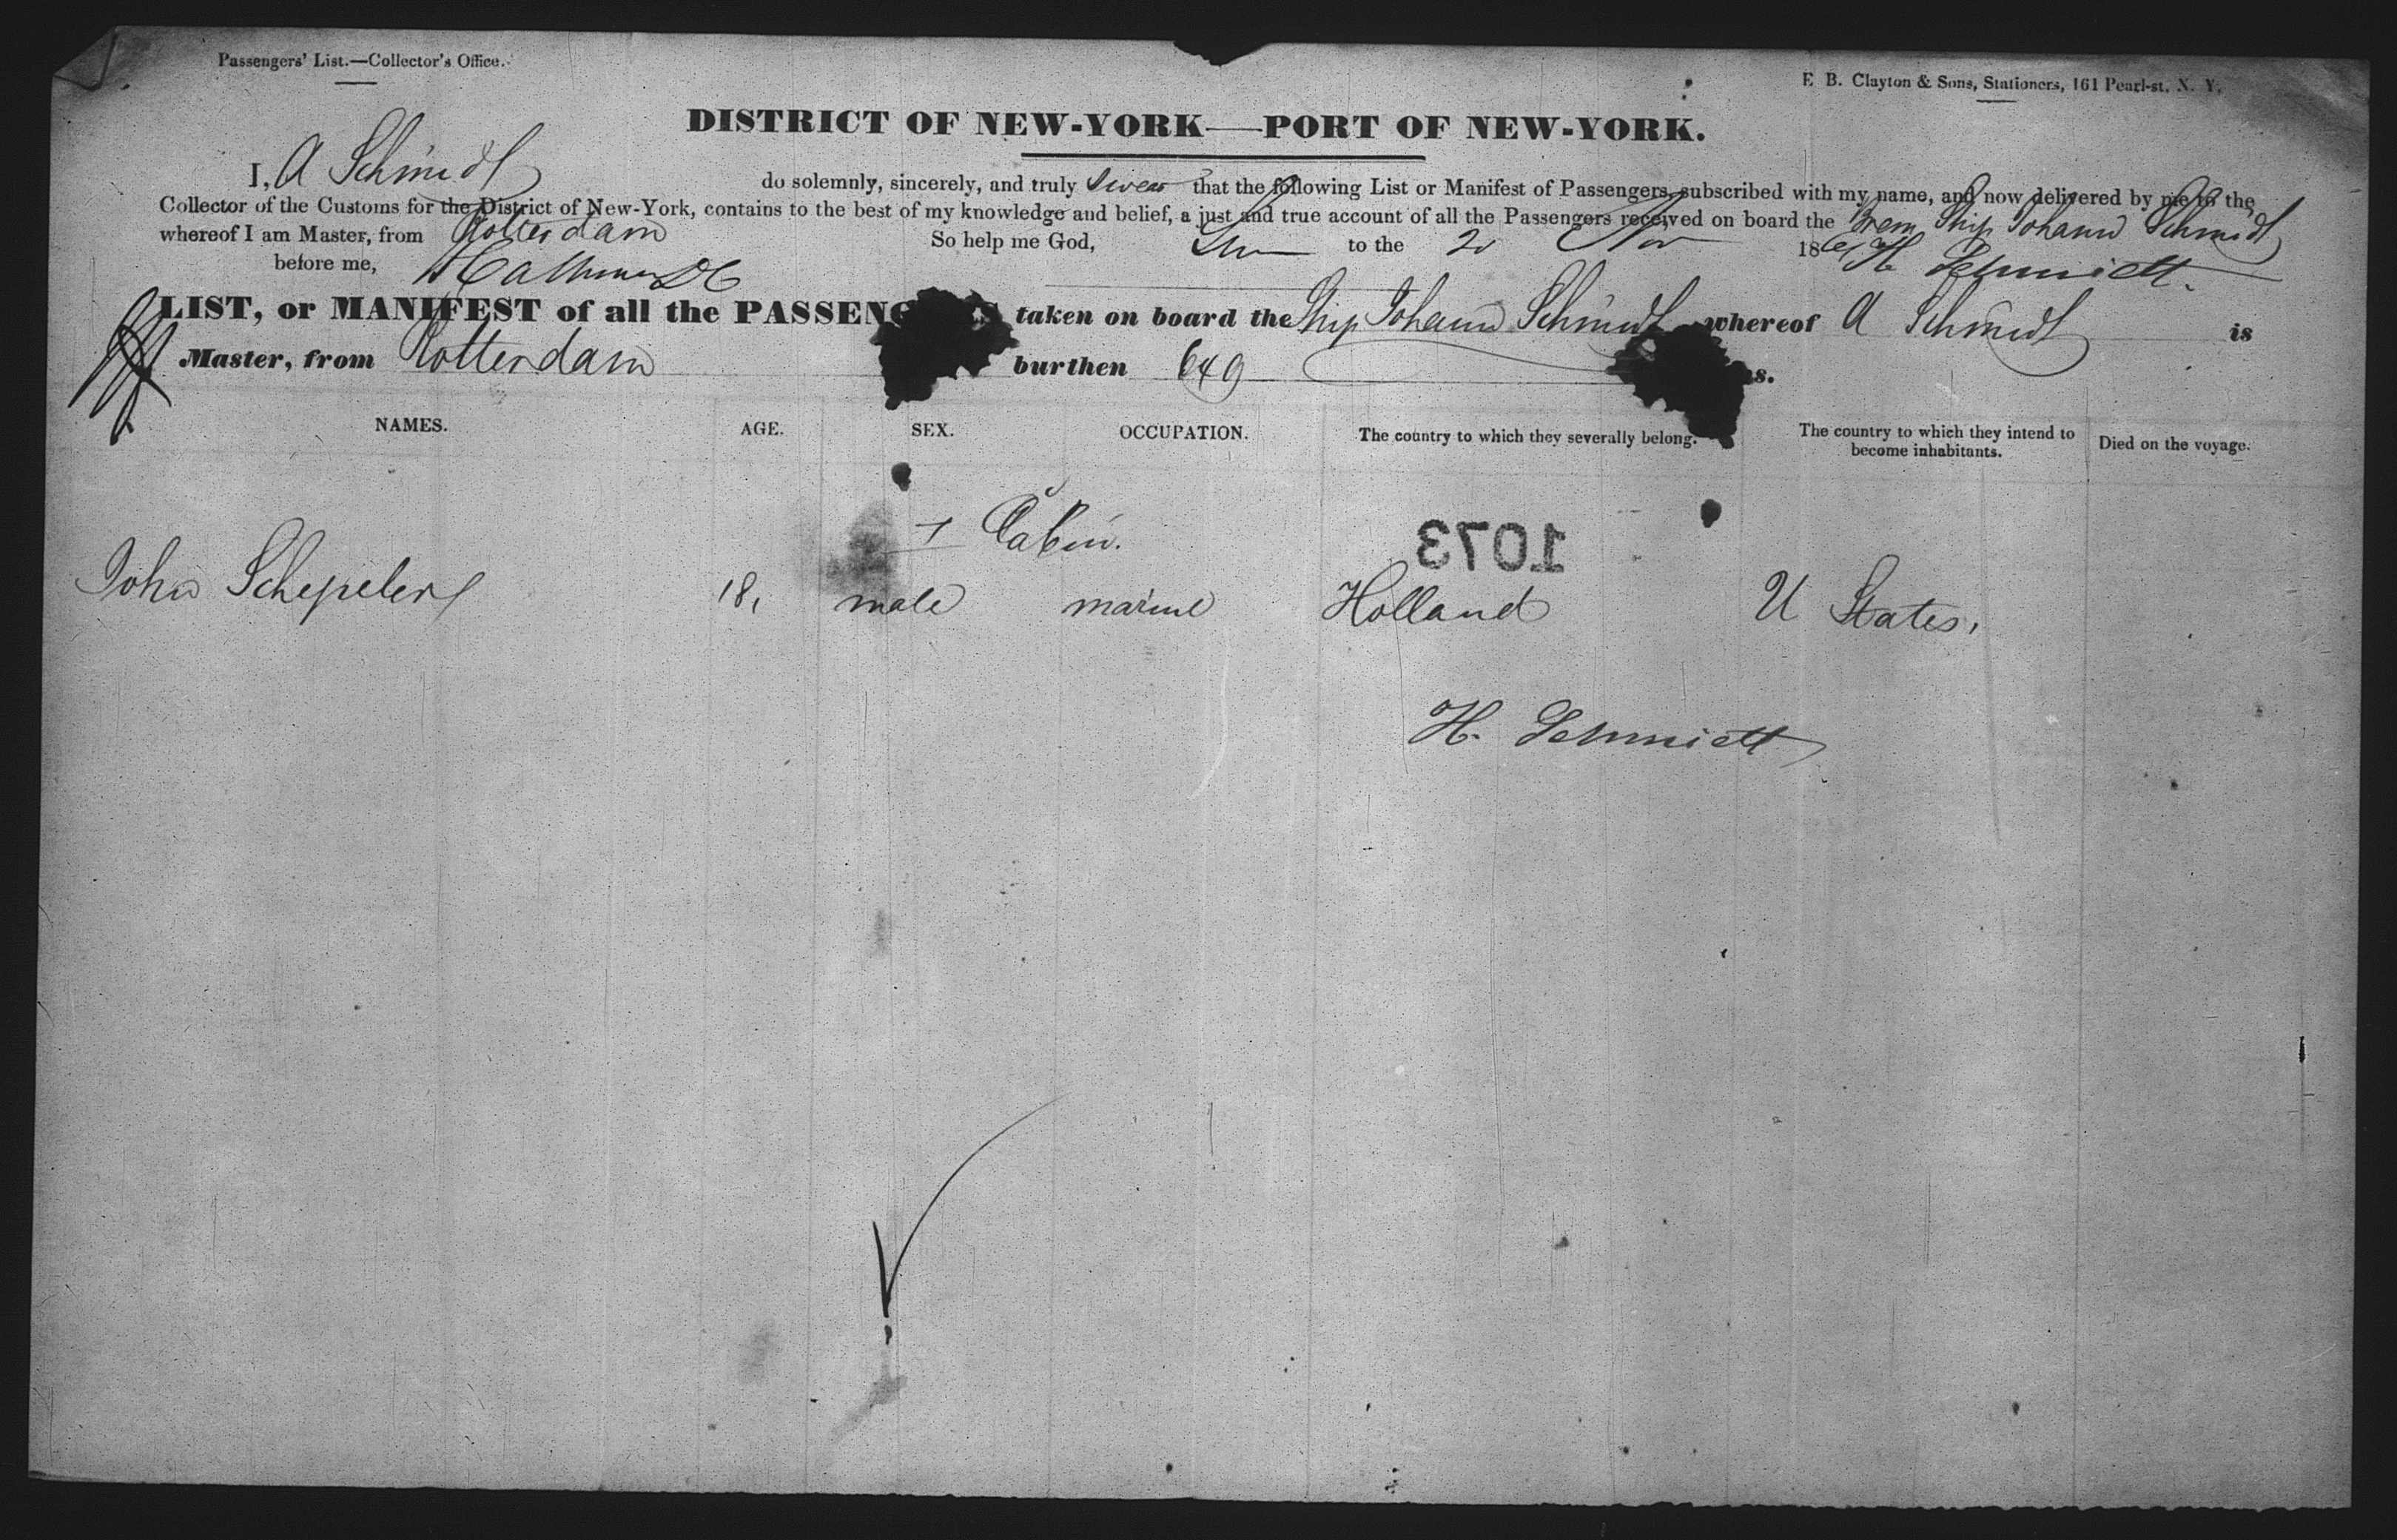 Passengers' List.—Collector's Office.
E B. Clayton & Sons, Stationers, 161 Pearl-st. N. Y.
DISTRICT OF NEW-YORK—PORT OF NEW-YORK.
I, A Schmidt do solemnly, sincerely, and truly swear that the following List or Manifest of Passengers, subscribed with my name, and now delivered by me to the
Collector of the Customs for the District of New-York, contains to the best of my knowledge and belief, a just and true account of all the Passengers received on board the Brem Ship Johann Schmidt
whereof I am Master, from Rotterdam So help me God, to the 2 Nov 186
before me, H. Schmidt.
LIST, or MANIFEST of all the PASSENG S taken on board the Ship Johann Schmidt whereof A Schmidt is
Master, from Rotterdam burthen 649 s.
NAMES. AGE. SEX. OCCUPATION. The country to which they severally belong. The country to which they intend to become inhabitants. Died on the voyage.
Cabin.
1073
John Schepeler 18, male marine Holland U States,
H. Schmidt